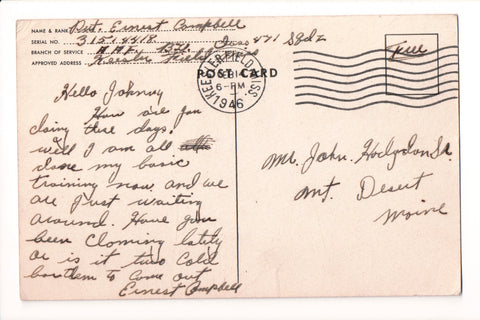 NAME & RANK Pvt. Ernest Campbell
SERIAL NO. 31514418
BRANCH OF SERVICE A.A.F. 471 Sqd 2
APPROVED ADDRESS Keesler Field Miss
POST CARD
KEESLER FIELD, MISS.
6-PM
1946
Free
Hello Johnny
How are you
doing these days.
well I am all
done my basic
training now. and we
are just waiting
around. Have you
been Clamming lately
or is it two Cold
for them to come out
Ernest Campbell
Mr. John. Hodgdon Sr.
Mt. Desert
Maine